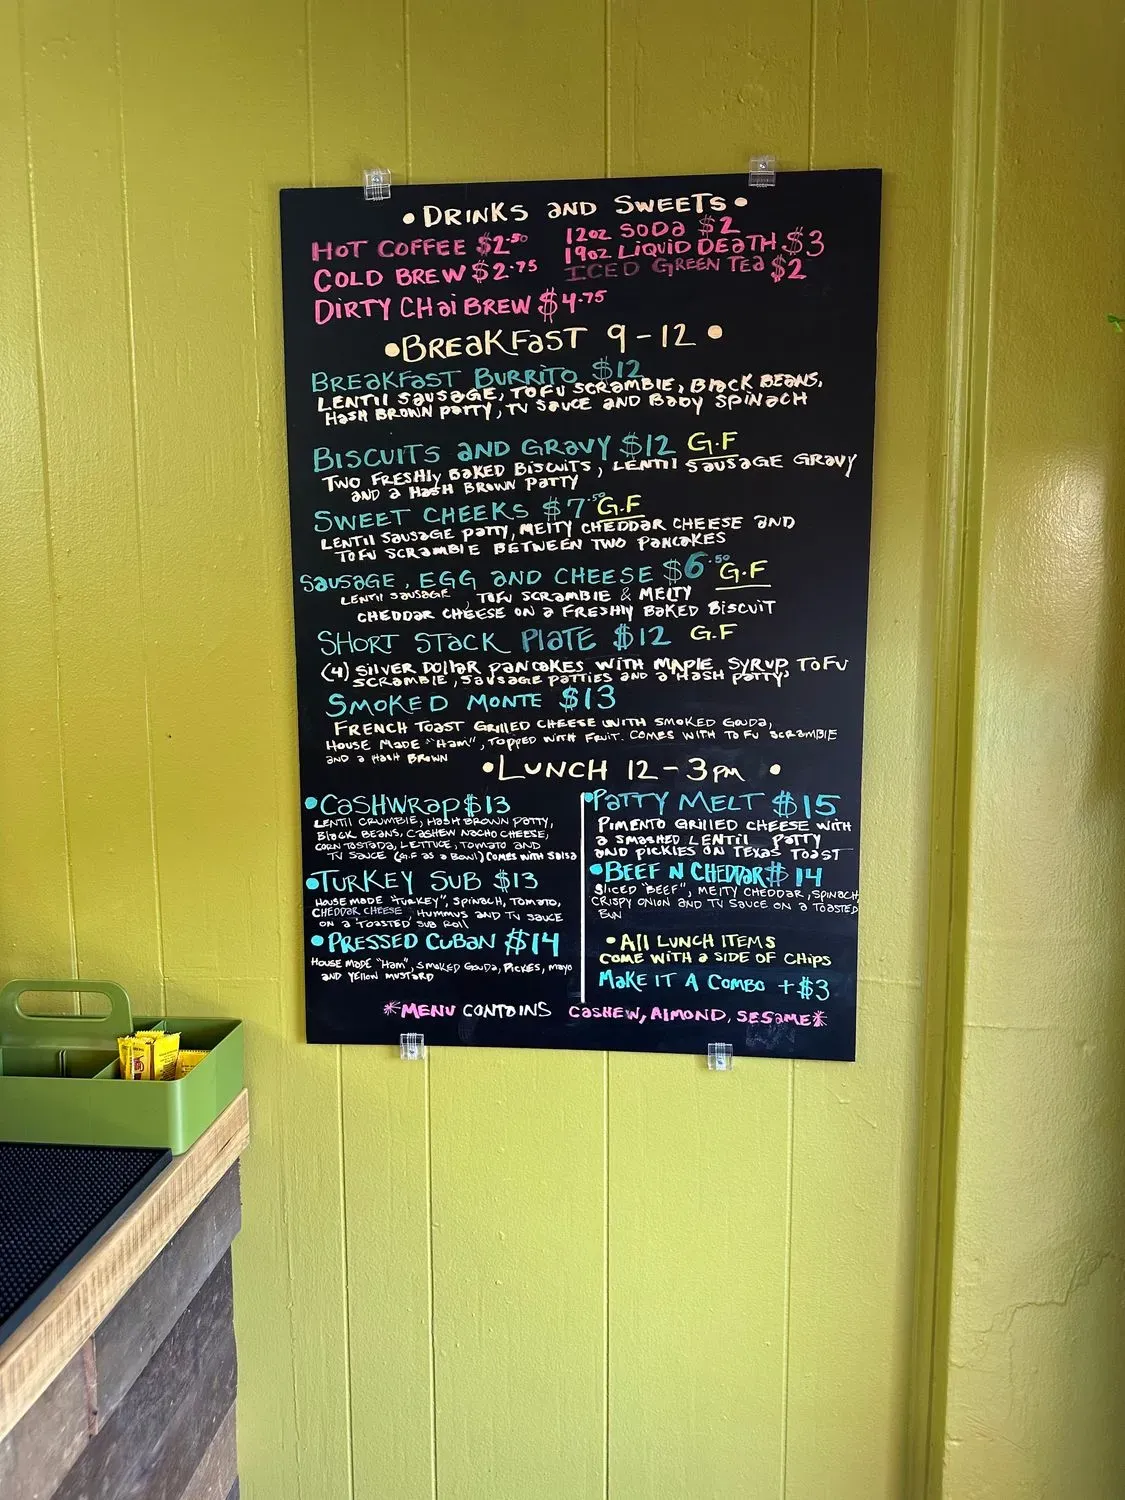 • DRINKS AND SWEETS •
HOT COFFEE $2.50
COLD BREW $2.75
DIRTY CHAI BREW $4.75
12oz SODA $2
19oz LIQUID DEATH $3
ICED GREEN TEA $2
• BREAKFAST 9-12 •
BREAKFAST BURRITO $12
LENTIL SAUSAGE, TOFU SCRAMBLE, BLACK BEANS,
HASH BROWN PATTY, TV SAUCE AND BABY SPINACH
BISCUITS AND GRAVY $12 G.F
TWO FRESHLY BAKED BISCUITS, LENTIL SAUSAGE GRAVY
AND A HASH BROWN PATTY
SWEET CHEEKS $7.50 G.F
LENTIL SAUSAGE PATTY, MELTY CHEDDAR CHEESE AND
TOFU SCRAMBLE BETWEEN TWO PANCAKES
SAUSAGE, EGG AND CHEESE $6.50 G.F
LENTIL SAUSAGE, TOFU SCRAMBLE & MELTY
CHEDDAR CHEESE ON A FRESHLY BAKED BISCUIT
SHORT STACK PLATE $12 G.F
(4) SILVER DOLLAR PANCAKES WITH MAPLE SYRUP, TOFU
SCRAMBLE, SAUSAGE PATTIES AND A HASH PATTY
SMOKED MONTE $13
FRENCH TOAST GRILLED CHEESE WITH SMOKED GOUDA,
HOUSE MADE "HAM", TOPPED WITH FRUIT. COMES WITH TOFU SCRAMBLE
AND A HASH BROWN
• LUNCH 12-3PM •
• CASHWRAP $13
LENTIL CRUMBLE, HASH BROWN PATTY,
BLACK BEANS, CASHEW NACHO CHEESE,
CORN TOSTADA, LETTUCE, TOMATO AND
TV SAUCE (G.F AS A BOWL) COMES WITH SALSA
• TURKEY SUB $13
HOUSE MADE "TURKEY", SPINACH, TOMATO,
CHEDDAR CHEESE HUMMUS AND TV SAUCE
ON A TOASTED SUB ROLL
• PRESSED CUBAN $14
HOUSE MADE "HAM", SMOKED GOUDA, PICKLES, MAYO
AND YELLOW MUSTARD
• PATTY MELT $15
PIMENTO GRILLED CHEESE WITH
A SMASHED LENTIL PATTY
AND PICKLES ON TEXAS TOAST
• BEEF N CHEDDAR $14
SLICED "BEEF", MELTY CHEDDAR, SPINACH,
CRISPY ONION AND TV SAUCE ON A TOASTED
BUN
• ALL LUNCH ITEMS
COME WITH A SIDE OF CHIPS
MAKE IT A COMBO +$3
*MENU CONTAINS CASHEW, ALMOND, SESAME*